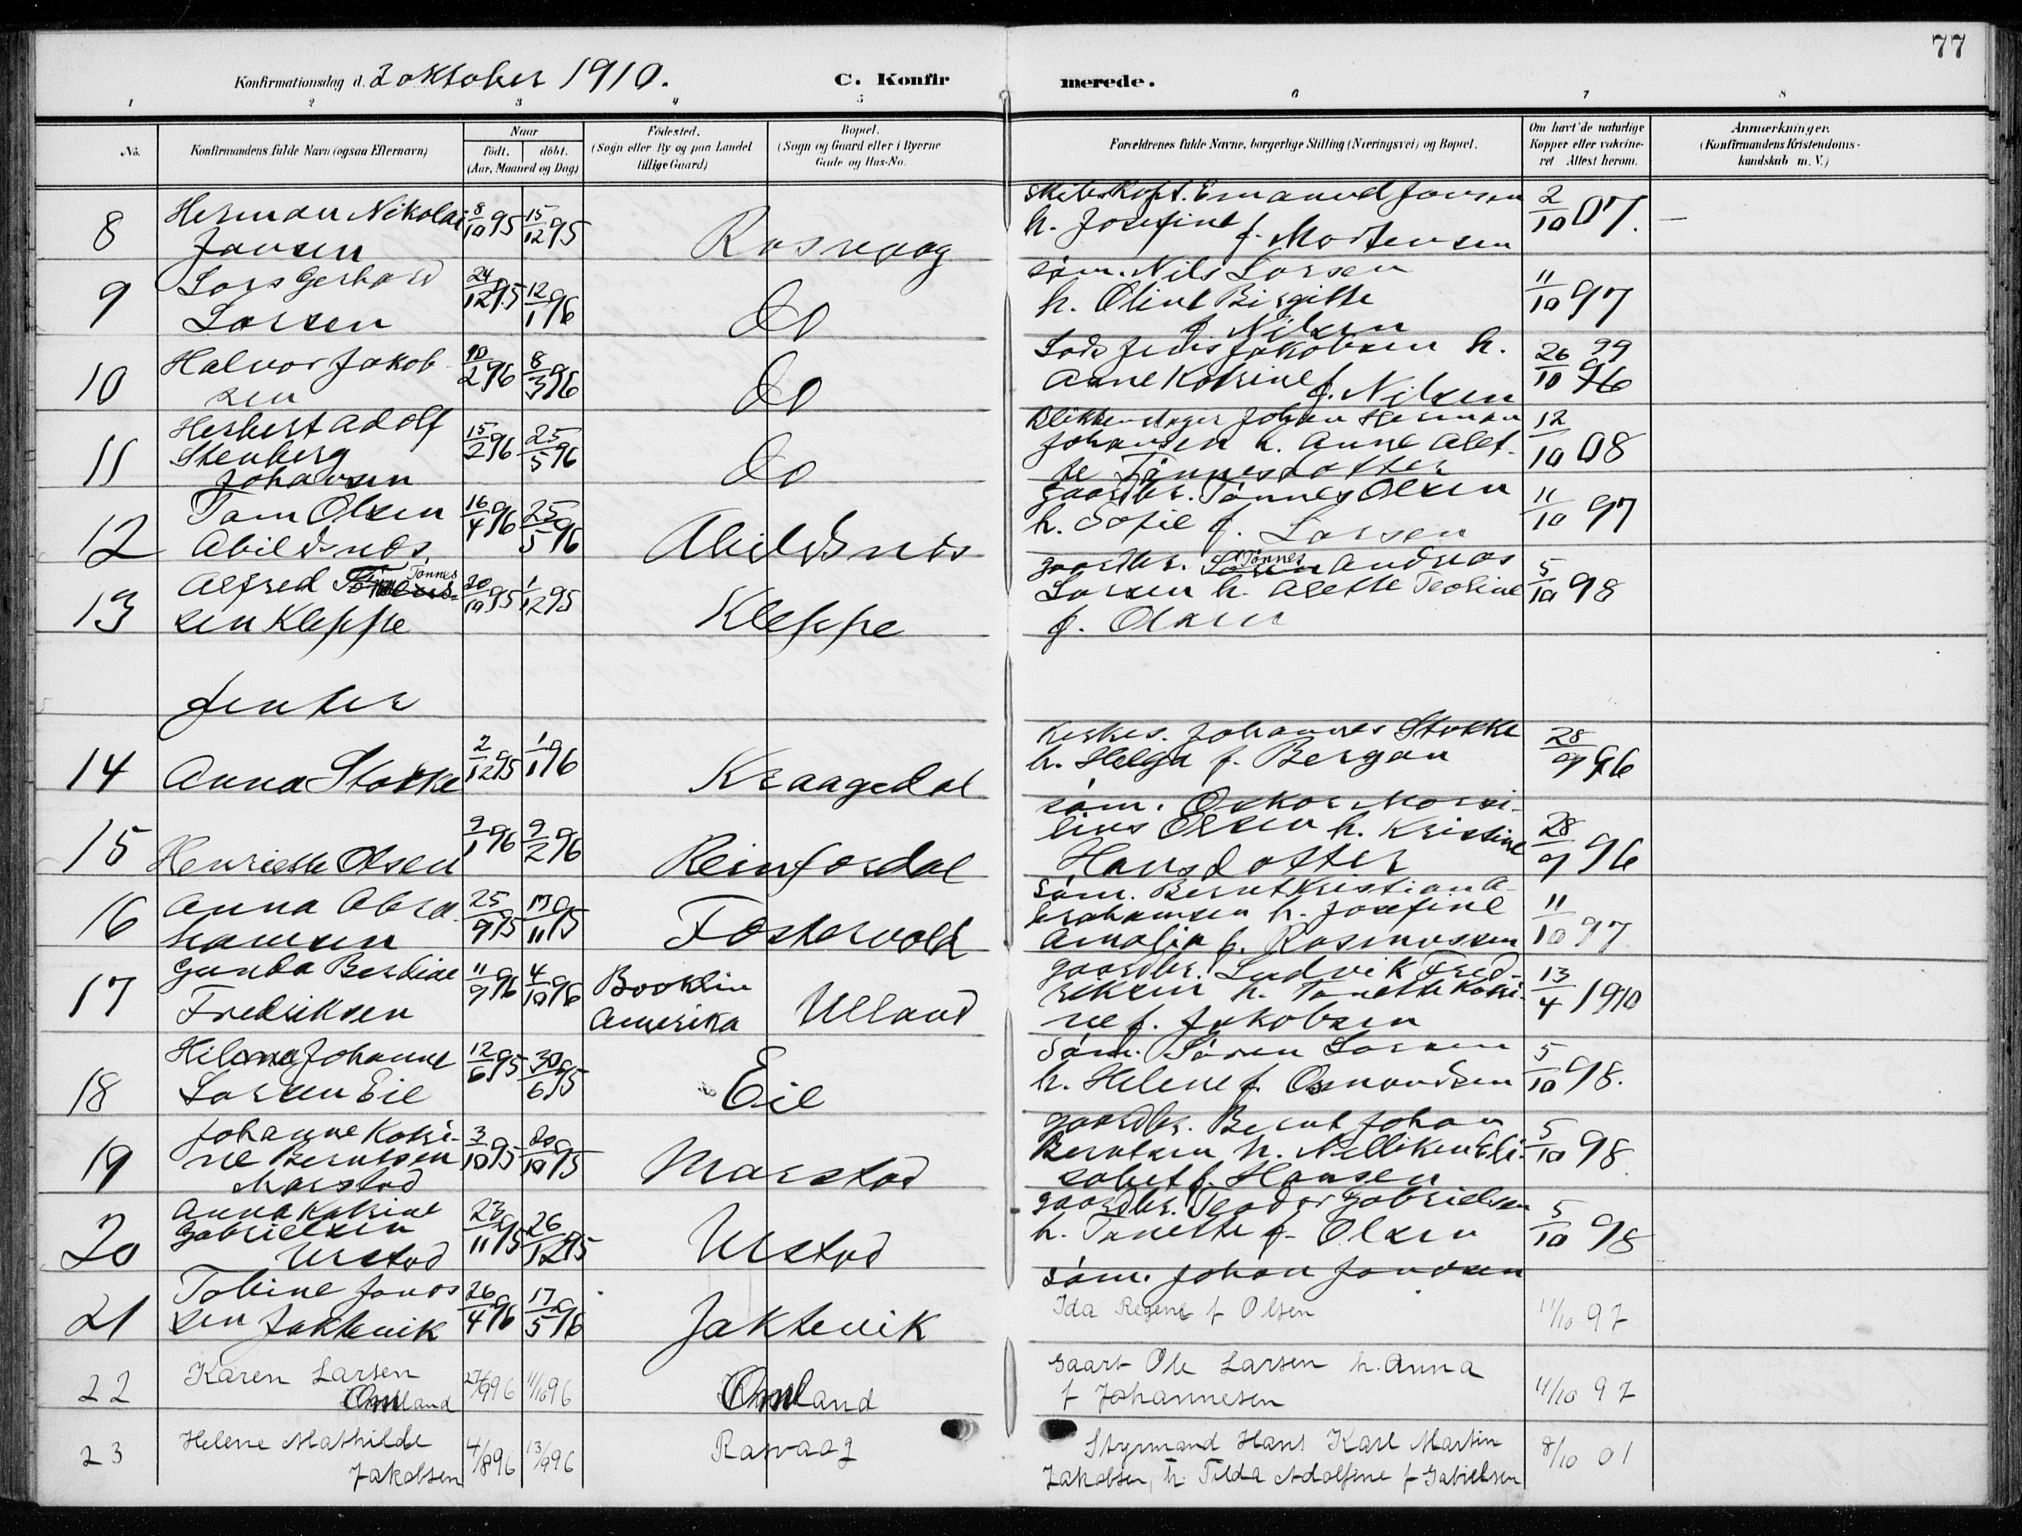 77
Konfirmationsdag d. 2 oktober 1910. C. Konfirmerede.
1 2 3 4 5 6 7 8
No. Konfirmandens fulde Navn (ogsaa Efternavn) Naar født. døbt. (Aar, Maaned og Dag) Fødested. (Sogn eller By og paa Landet tillige Gaard) Bopæl. (Sogn og Gaard eller i Byerne Gade og Hus-No. Forældrenes fulde Navne, borgerlige Stilling (Næringsvei) og Bopæl. Om havt de naturlige Kopper eller vakcineret Attest herom. Anmærkninger. (Konfirmandens Kristendomskundskab m. V.)
8 Herman Nikolai Jansen 8/10 95 15/12 95 Rasvaag Emanuel Jansen h. Josefine f. Mortensen 2/10 07. —
9 Lars Gerhard Larsen 24/12 95 12/1 96 do søm. Nils Larsen h. Oline Birgitte f. Nilsen 11/10 97
10 Halvor Jakobsen 10/2 96 8/3 96 do Lods Jens Jakobsen h. Anne Katrine f. Nilsen 26/10 99
11 Herbert Adolf Stenberg Johansen 15/2 96 25/5 96 do Blikkenslager Johan Herman Johansen h. Anne Alette Tønnesdatter 12/10 08
12 Tom Olsen Abildsnes 16/4 96 25/5 96 Abildsnes gaardbr. Tønnes Olsen h. Sofie f. Larsen 11/10 97
13 Alfred Tønnessen Kleppe 20/10 95 1/12 95 Kleppe gaardbr. Tønnes Andreas Larsen h. Alette Teoline f. Olsen 5/10 98
Jenter
14 Anna Stokke 2/12 95 1/1 96 Kraagedal Johannes Stokke h. Helga f. Bergan 28/9 96
15 Henriette Olsen 9/1 96 9/2 96 Reinfosdal søm. Oskar Marsilius Olsen h. Kristine Hansdatter 28/9 96
16 Anna Abrahamsen 25/9 95 17/11 95 Fostervold søm. Bernt Kristian Abrahamsen h. Josefine Amalia f. Rasmussen 11/10 97
17 Gunda Berdine Fredriksen 11/9 96 4/10 96 Booklin Amerika Ulland gaardbr. Ludvik Fredriksen h. Tanette Katrine f. Jakobsen 13/4 1910
18 Johanne Larsen Eie 12/6 95 30/6 95 Eie Søm. Søren Larsen h. Helene f. Osmundsen 5/10 98.
19 Johanne Katrine Berntsen Marstad 3/10 95 20/10 95 Marstad gaardbr. Bernt Johan Berntsen h. Nelliken Elisabet f. Hansen 5/10 98
20 Anna Katrine Gabrielsen Urstad 23/11 95 26/12 95 Urstad gaardbr. Teodor Gabrielsen h. Tanette f. Olsen 5/10 98
21 Toline Janassen Jaktevik 26/4 96 17/5 96 Jaktevik søm. Johan Jonassen
Ida Regene f Olsen 11/10 97
22 Karen Larsen Omland 27/9 96 11/10 96 Omland Gaart Ole Larsen h. Anna f Johannesen 11/10 97
23 Helene Mathilde Jakobsen 4/8 96 13/9 96 Rasvaag Styrmand Hans Karl Martin Jakobsen, h Tilda Adolfine f Gabrielsen 8/10 01